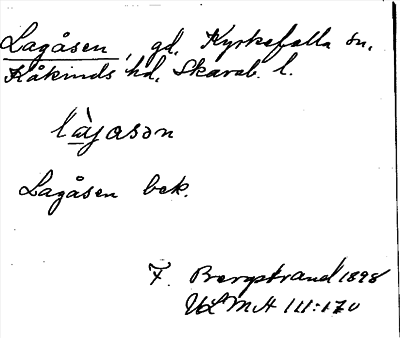 Lagåsen, gd, Kyrkefalla sn,
Kåkinds hd, Skarab. l.
làgason
Lagåsen bek.
F. Bergstrand 1898
ULMA 111:170